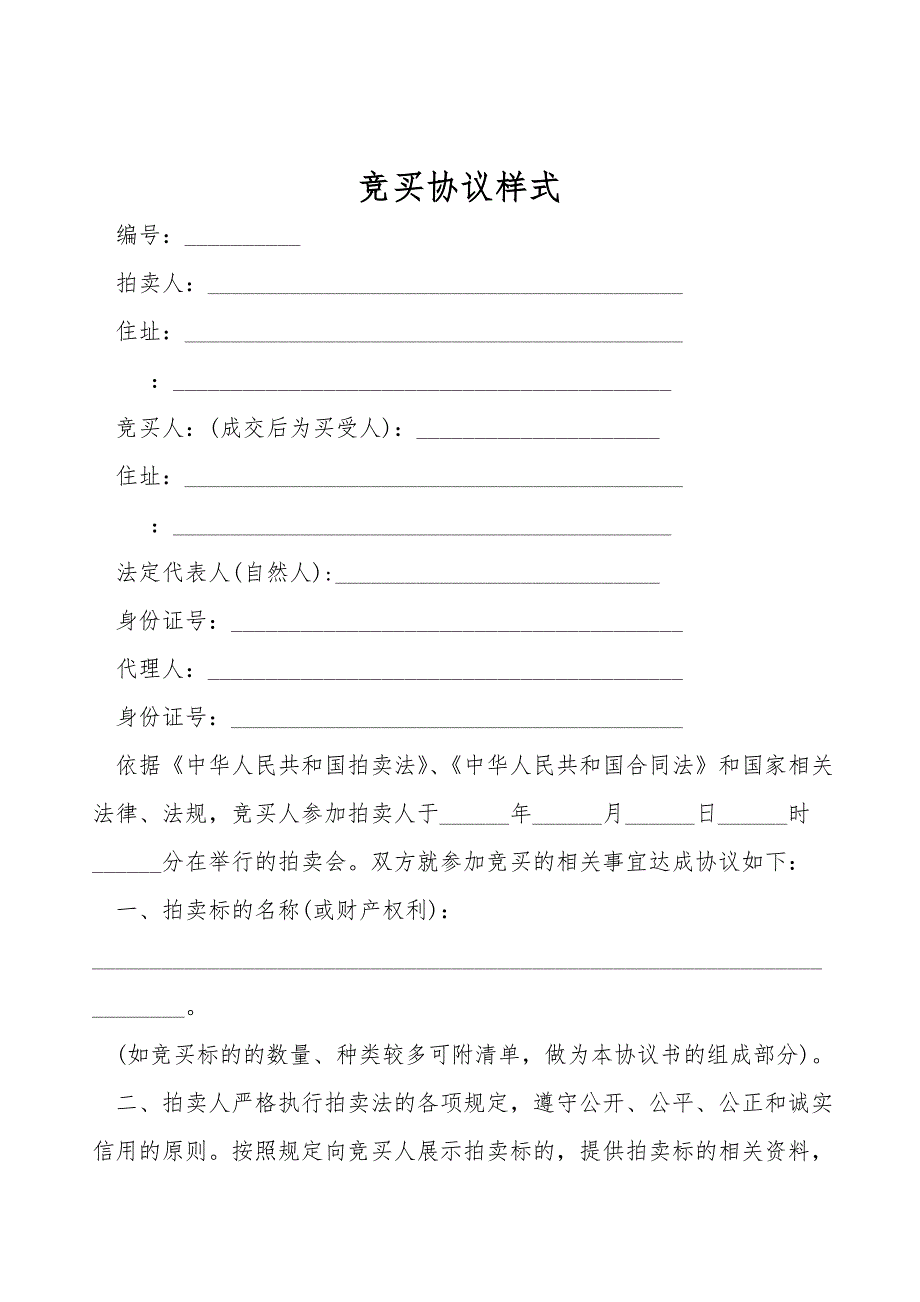 竞买协议样式
编号：__________
拍卖人：_________________________________________
住址：___________________________________________
：___________________________________________
竞买人：(成交后为买受人)：_____________________
住址：___________________________________________
：___________________________________________
法定代表人(自然人):____________________________
身份证号：_______________________________________
代理人：_________________________________________
身份证号：_______________________________________
依据《中华人民共和国拍卖法》、《中华人民共和国合同法》和国家相关
法律、法规，竞买人参加拍卖人于______年______月______日______时
______分在举行的拍卖会。双方就参加竞买的相关事宜达成协议如下：
一、拍卖标的名称(或财产权利)：
_______________________________________________________________
________。
(如竞买标的的数量、种类较多可附清单，做为本协议书的组成部分)。
二、拍卖人严格执行拍卖法的各项规定，遵守公开、公平、公正和诚实
信用的原则。按照规定向竞买人展示拍卖标的，提供拍卖标的相关资料，